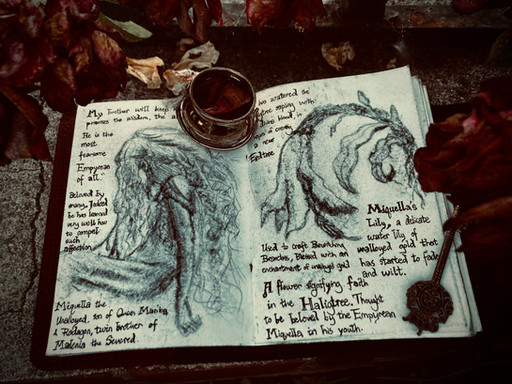 My Brother will keep
promises he
He is the
most
fearsome
Empyrean
of all."
Beloved by
many, Indeed
he has learned
very well how
to compel
such
affection.
Miquella the
Unalloyed, son of Queen Marika
& Radagon, twin brother of
Malenia the Severed.
watered
blood, in
a new
Erdtree
Miquella's
Lilly, a delicate
water lily of
unalloyed gold that
has started to fade
and wilt.
Used to craft Bewitching
Branches, Blessed with an
enchantment of unalloyed gold
A flower signifying faith
in the Haligtree. Thought
to be beloved by the Empyrean
Miquella in his youth.